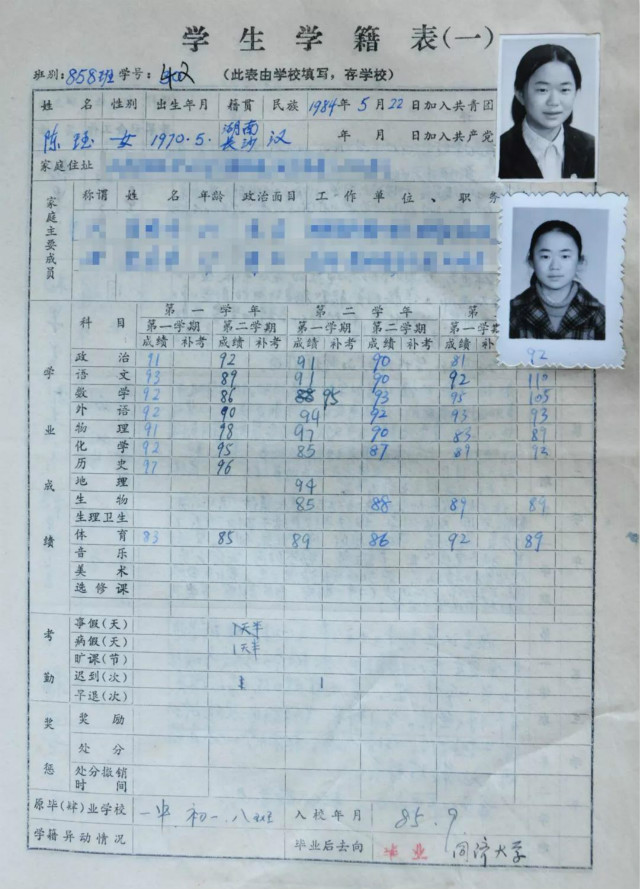 学生学籍表(一)
班别: 858班 学号: 42 (此表由学校填写，存学校)
姓名 性别 出生年月 籍贯 民族 1984年5月22日加入共青团
陈 女 1970.5. 湖南长沙 汉 年 月 日加入共产党
家庭住址
家庭主要成员 称谓 姓名 年龄 政治面目 工作单位、职务
第一学年 第二学年 第
科目 第一学期 第二学期 第一学期 第二学期 第一学期
成绩 补考 成绩 补考 成绩 补考 成绩 补考 成绩
学业成绩
政治 91 92 91 90 81 92
语文 93 89 91 90 92 110
数学 92 86 95 93 95 105
外语 92 90 94 92 93 93
物理 91 98 97 90 83 89
化学 92 95 85 87 89 93
历史 97 96
地理 94
生物 85 88 89 89
生理卫生
体育 83 85 89 86 92 89
音乐
美术
选修课
考勤
事假(天) 1天半
病假(天) 1天半
旷课(节)
迟到(次) 1
早退(次)
奖惩
奖励
处分
处分撤销时间
原毕(肄)业学校 一中 初一.八班 入校年月 85.9
学籍异动情况 毕业后去向 毕业 同济大学